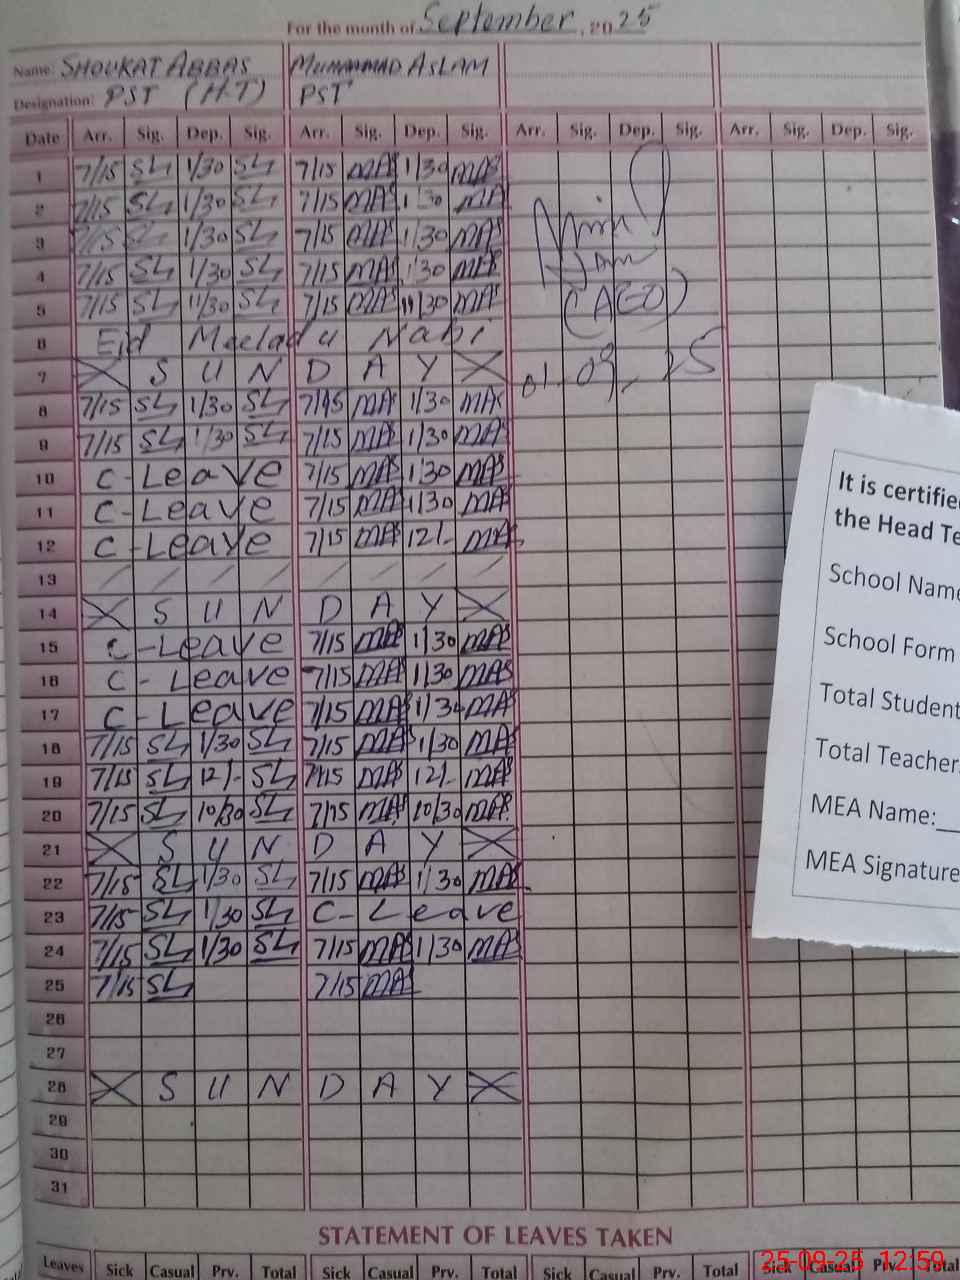 For the month of September, 2025
Name: SHOUKAT ABBAS MUHAMMAD ASLAM
Designation: PST (H-T) PST
Date Arr. Sig. Dep. Sig. Arr. Sig. Dep. Sig. Arr. Sig. Dep. Sig. Arr. Sig. Dep. Sig.
1 7/15 SL 1/30 SL 7/15 MAs 1/30 MAs
2 7/15 SL 1/30 SL 7/15 MAs 1/30 MA
3 7/15 SL 1/30 SL 7/15 MAs 1/30 MAs
4 7/15 SL 1/30 SL 7/15 MAs 1/30 MAs
5 7/15 SL 11/30 SL 7/15 MAs 11/30 MAs
(AEO)
6 Eid Meelad u Nabi
7 X S U N D A Y X
01.09.25
8 7/15 SL 1/30 SL 7/15 MAs 1/30 MAs
9 7/15 SL 1/30 SL 7/15 MAs 1/30 MAs
10 C-Leave 7/15 MAs 1/30 MAs
11 C-Leave 7/15 MAs 1/30 MAs
12 C-Leave 7/15 MAs 12/- MAs
13 / / / / / / / /
14 X S U N D A Y X
15 C-Leave 7/15 MAs 1/30 MAs
16 C-Leave 7/15 MAs 1/30 MAs
17 C-Leave 7/15 MAs 1/30 MAs
18 7/15 SL 1/30 SL 7/15 MAs 1/30 MAs
19 7/15 SL 12/- SL 7/15 MAs 12/- MAs
20 7/15 SL 10/30 SL 7/15 MAs 10/30 MAs
21 X S U N D A Y X
22 7/15 SL 1/30 SL 7/15 MAs 1/30 MAs
23 7/15 SL 1/30 SL C-Leave
24 7/15 SL 1/30 SL 7/15 MAs 1/30 MAs
25 7/15 SL 7/15 MAs
26
27
28 X S U N D A Y X
29
30
31
STATEMENT OF LEAVES TAKEN
Leaves Sick Casual Prv. Total Sick Casual Prv. Total Sick Casual Prv. Total Sick Casual Prv. Total
It is certifie
the Head Te
School Name
School Form
Total Student
Total Teacher
MEA Name:__
MEA Signature
25-09-25 12:59